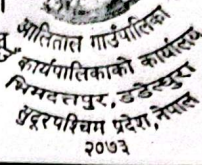 आलिताल गाउँपालिका
कार्यपालिकाको कार्यालय
भिमदत्तपुर, डडेल्धुरा
सुदूरपश्चिम प्रदेश, नेपाल
२०७३